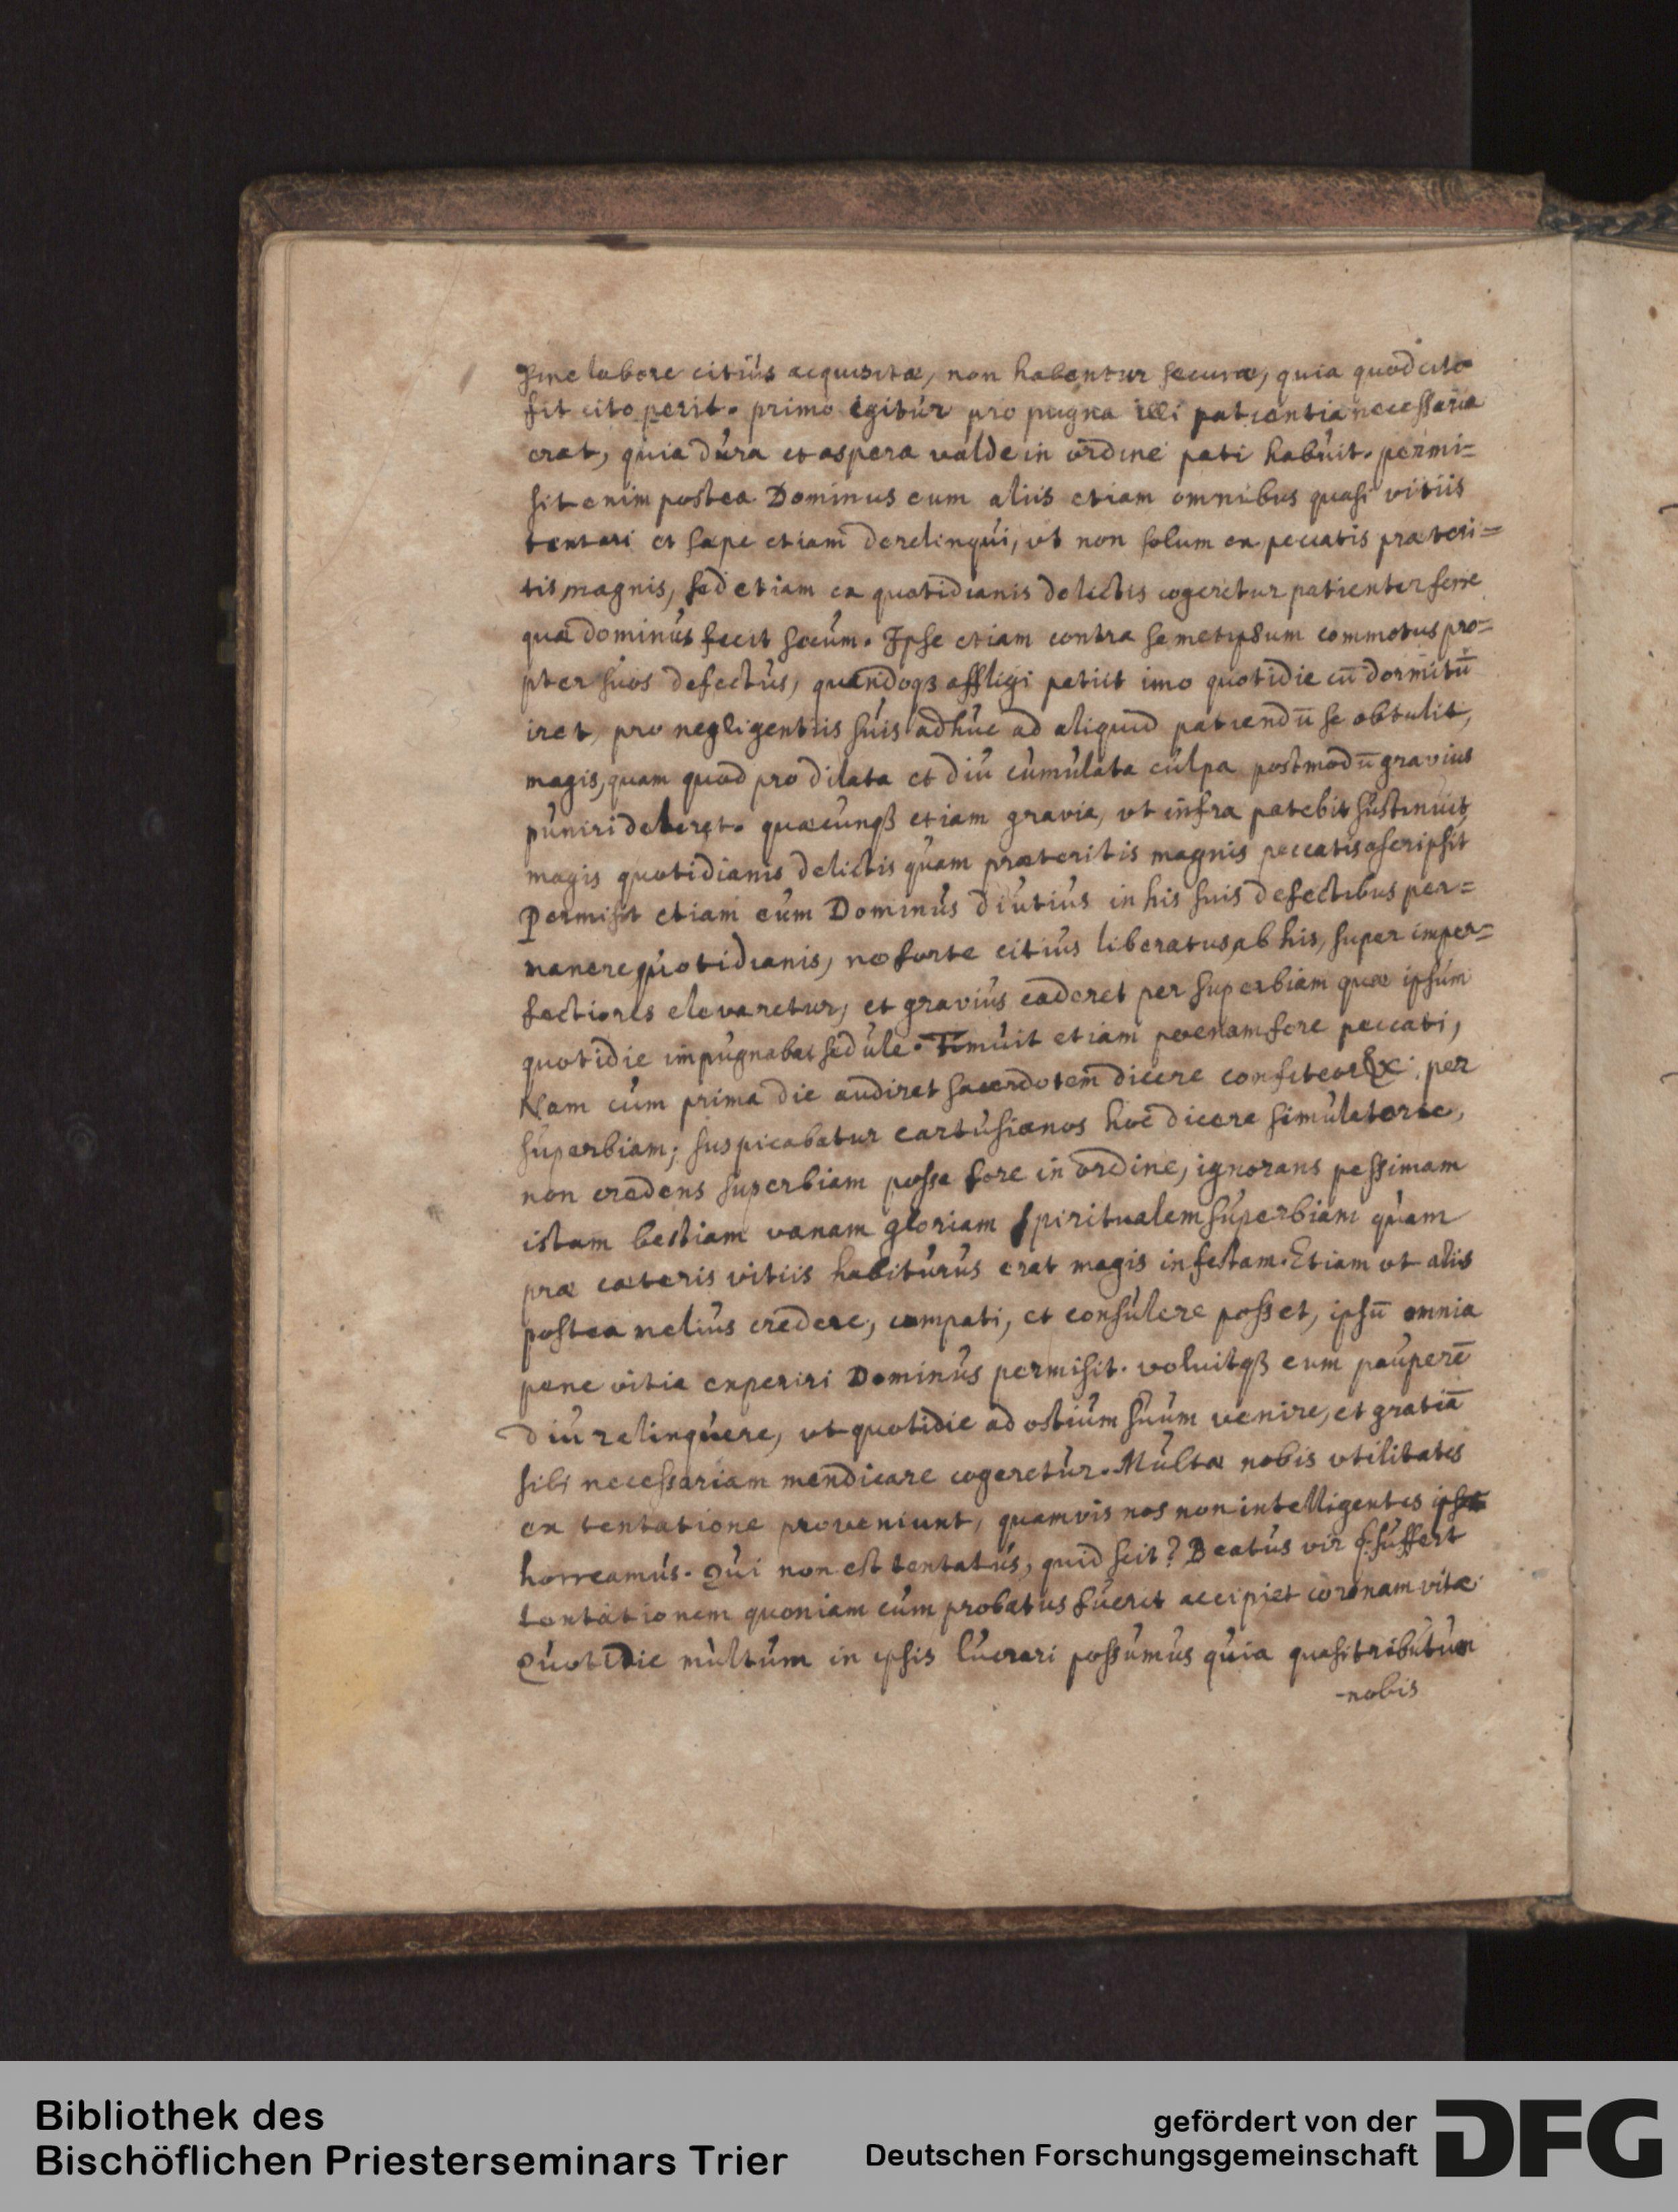 sine labore citiùs acquisitæ, non habentur securæ, quia quod cito
fit cito perit. primo igitùr pro pugna illi patientia necessaria
erat, quia dùra et aspera valde in ordine pati habùit. permi=
sit enim postea Dominus eum aliis etiam omnibus quasi vitiis
tentari et sæpe etiam derelinqùi, vt non solum ex peccatis præteri=
tis magnis, sed etiam ex quotidianis delictis cogeretur patienter ferre
quæ dominùs fecit secùm. Ipse etiam contra semetipsum commotus pro=
pter sùos defectùs, quandoqȝ affligi petiit imo quotidie cū dormitū
iret, pro negligentiis sùis adhùc ad aliquid patiendū se obtulit,
magis, quam quod pro dilata et diù cùmùlata cùlpa postmodū gravius
pùniri deberet. quæcunqß etiam gravia, vt infra patebit sùstinuit
magis quotidianis delictis qùam præteritis magnis peccatis ascripsit
Permisit etiam eùm Dominùs diùtiùs in his suis defectibus per=
manere qùotidianis, ne forte citiùs liberatus, ab his, super imper=
fectiores elevaretur, et graviùs caderet per superbiam quæ ipsùm
quotidie impùgnabat sedùle. Timùit etiam poenam fore peccati,
Nam cùm prima die audiret sacerdotem dicere confiteor &c: per
sùperbiam; suspicabatur cartùsianos hoc dicere simùlatorie,
non credens superbiam posse fore in ordine, ignorans pessimam
istam bestiam vanam gloriam spiritualem sùperbiam qùam
præ cæteris vitiis habitùrùs erat magis infestam. Etiam vt aliis
postea meliùs credere, compati, et consùlere posset, ipsū omnia
pene vitia experiri Dominùs permisit. voluitqß eum paùperē
diù relinqùere, vt quotidie ad ostiùm sùùm venire, et gratiā
sibi necessariam mendicare cogeretùr. Mùltæ nobis vtilitates
ex tentatione proveniunt, quamvis nos non intelligentes
horreamùs. Qùi non est tentatùs, quid scit? Beatùs vir q sùffert
tentationem quoniam cùm probatùs fùerit accipiet coronam vitæ
Qùotidie mùltùm in ipsis lùcrari possùmùs qùia quasi tribùtùm
-nobis
Bibliothek des
Bischöflichen Priesterseminars Trier
gefördert von der
Deutschen Forschungsgemeinschaft
DFG